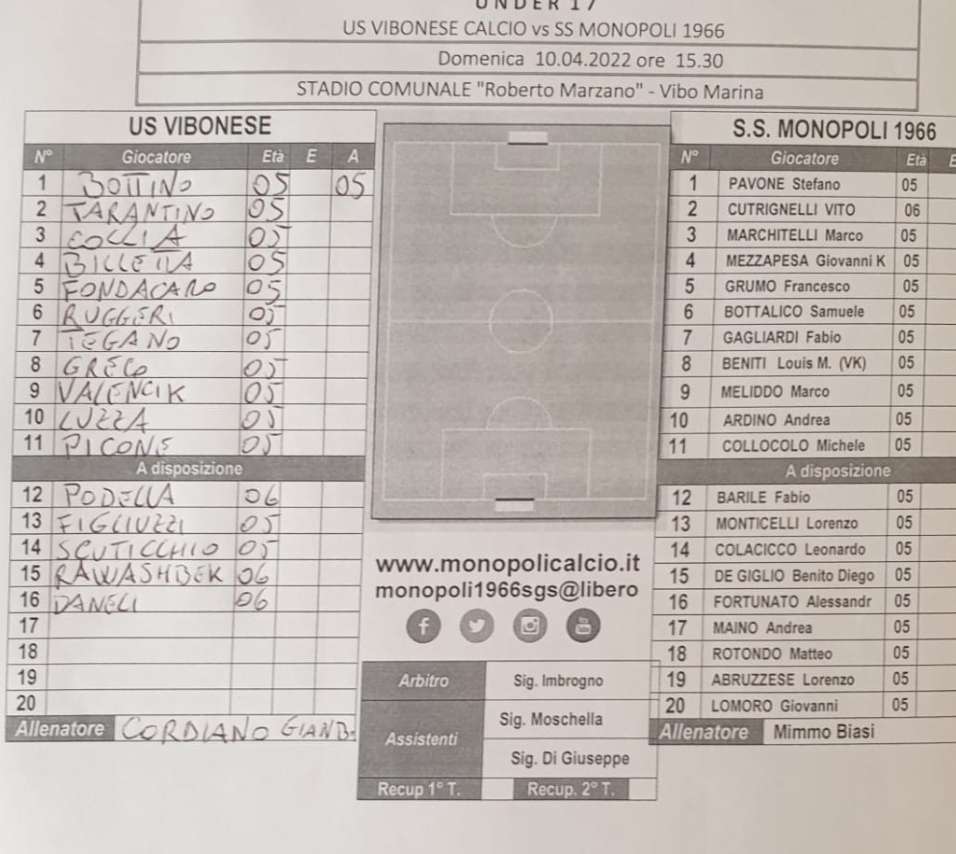 UNDER 17
US VIBONESE CALCIO vs SS MONOPOLI 1966
Domenica 10.04.2022 ore 15.30
STADIO COMUNALE "Roberto Marzano" - Vibo Marina
US VIBONESE
N° Giocatore Età E A
1 BOTTINO 05 05
2 TARANTINO 05
3 COLLIA 05
4 BILLETTA 05
5 FONDACARO 05
6 RUGGERI 05
7 TEGANO 05
8 GRECO 05
9 VALENCIK 05
10 LUZZA 05
11 PICONE 05
A disposizione
12 PODELLA 06
13 FIGLIUZZI 05
14 SCUTICCHIO 05
15 RAWASHDEK 06
16 DANELI 06
17
18
19
20
Allenatore CORDIANO GIANB.
www.monopolicalcio.it
monopoli1966sgs@libero
Arbitro Sig. Imbrogno
Assistenti Sig. Moschella
Sig. Di Giuseppe
Recup 1° T. Recup. 2° T.
S.S. MONOPOLI 1966
N° Giocatore Età E
1 PAVONE Stefano 05
2 CUTRIGNELLI VITO 06
3 MARCHITELLI Marco 05
4 MEZZAPESA Giovanni K 05
5 GRUMO Francesco 05
6 BOTTALICO Samuele 05
7 GAGLIARDI Fabio 05
8 BENITI Louis M. (VK) 05
9 MELIDDO Marco 05
10 ARDINO Andrea 05
11 COLLOCOLO Michele 05
A disposizione
12 BARILE Fabio 05
13 MONTICELLI Lorenzo 05
14 COLACICCO Leonardo 05
15 DE GIGLIO Benito Diego 05
16 FORTUNATO Alessandr 05
17 MAINO Andrea 05
18 ROTONDO Matteo 05
19 ABRUZZESE Lorenzo 05
20 LOMORO Giovanni 05
Allenatore Mimmo Biasi